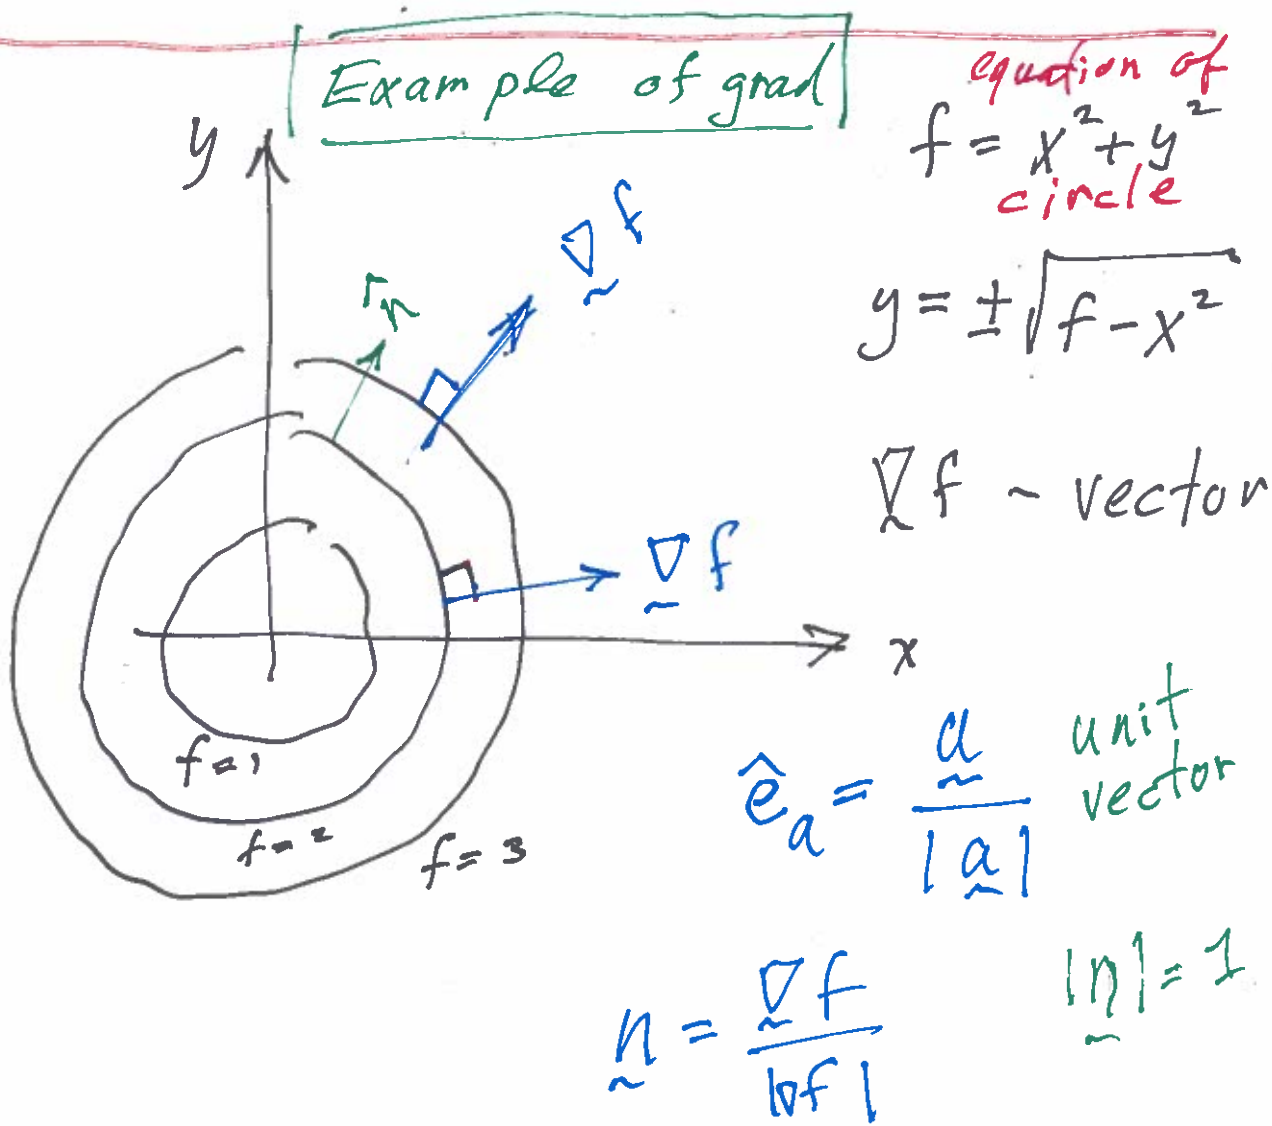 Example of grad
equation of
f = x² + y²
circle
y = ±√(f - x²)
y
∇̰ f
∇̰ f ~ vector
∇̰ f
x
f=1
f=2
f=3
ê_a = a̰ / |a̰|
unit
vector
ṋ = ∇̰ f / |∇f|
|ṋ| = 1